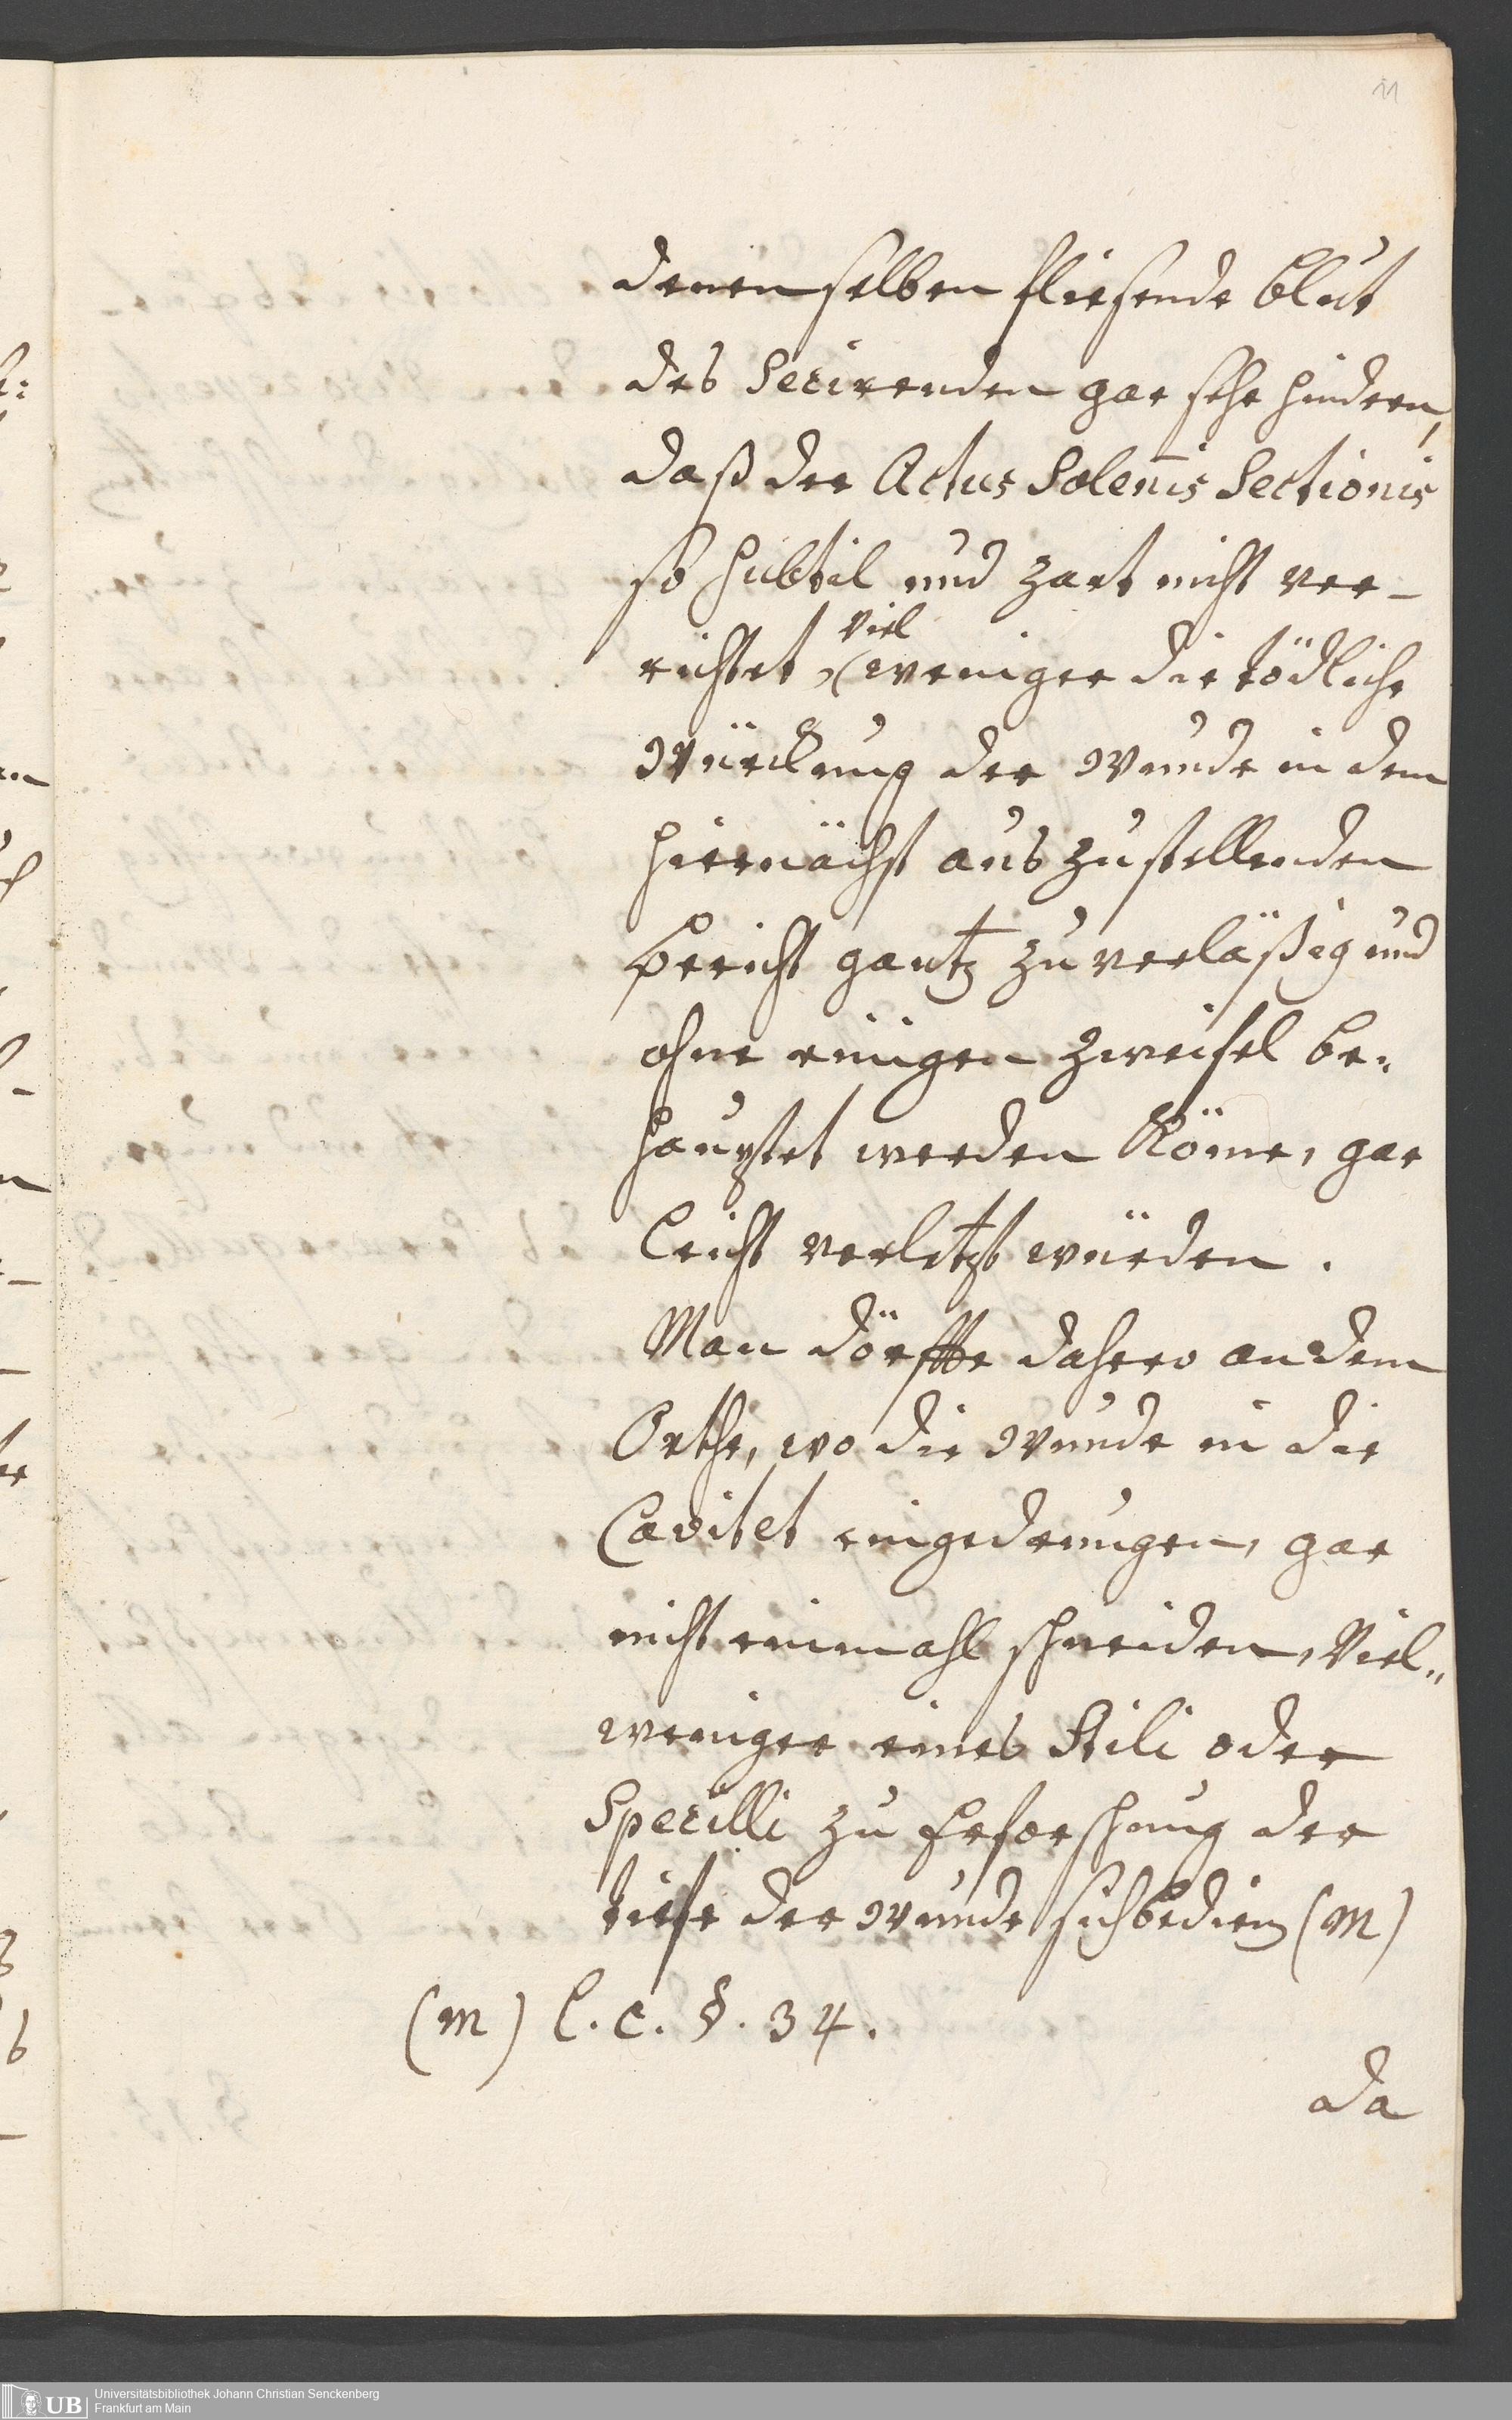 11
denenselben fliesende Blut
des Secirenden gar sehr hindern,
daß der Actus Solen̄is Sectionis
so subtil und zart nicht ver-
richtet, viel weniger die tödliche
Würckung der Wunde in dem
hiernächst auszustellenden
Bericht gantz zuverläßig und
ohne einigen Zweifel be-
hauptet werden Köñe, gar
leicht verletzt würden.
Man dörffte dahero an dem
Orthe, wo die Wunde in die
Cavitet eingedrungen, gar
nicht einmahl schneiden, Viel„
weniger eines Stili oder
Specilli zu Erforschung der
tiefe der Wunde sich bedienen (m)
(m) l. c. §. 34.
da
Universitätsbibliothek Johann Christian Senckenberg
Frankfurt am Main
UB